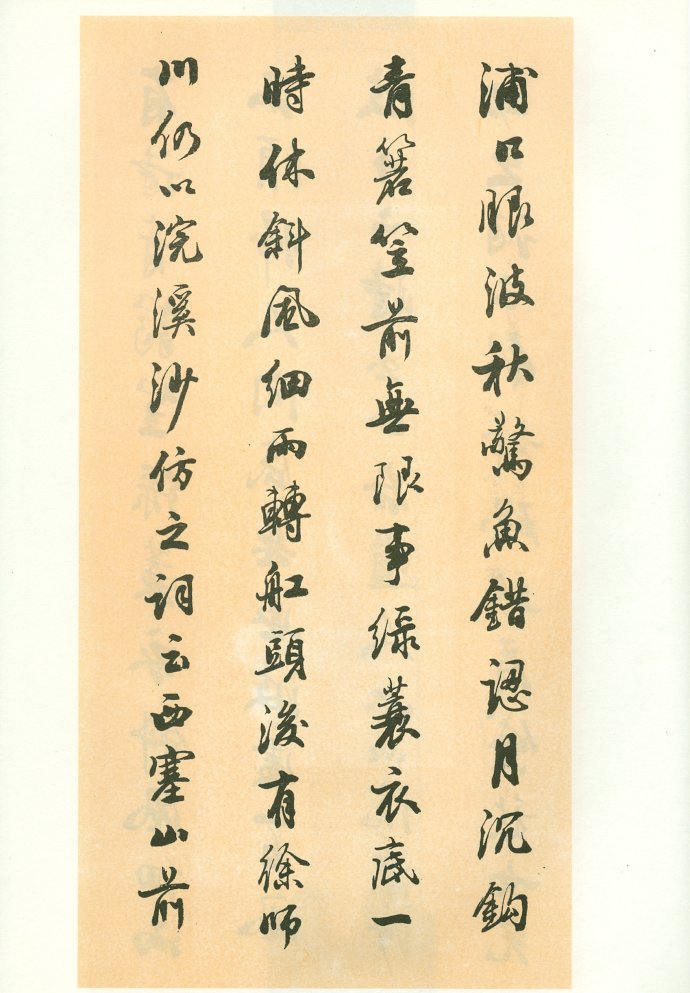 浦口眼波秋驚魚錯認月沉鈎
青箬笠前無限事綠蓑衣底一
時休斜風細雨轉舡頭後有徐師
川仍以浣溪沙仿之詞云西塞山前